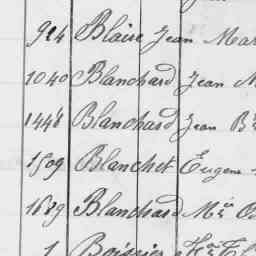 924 Blaise Jean Mar
1040 Blanchard Jean M
1448 Blanchard Jean Bte
1509 Blanchet Eugene
1689 Blanchard Mie
1